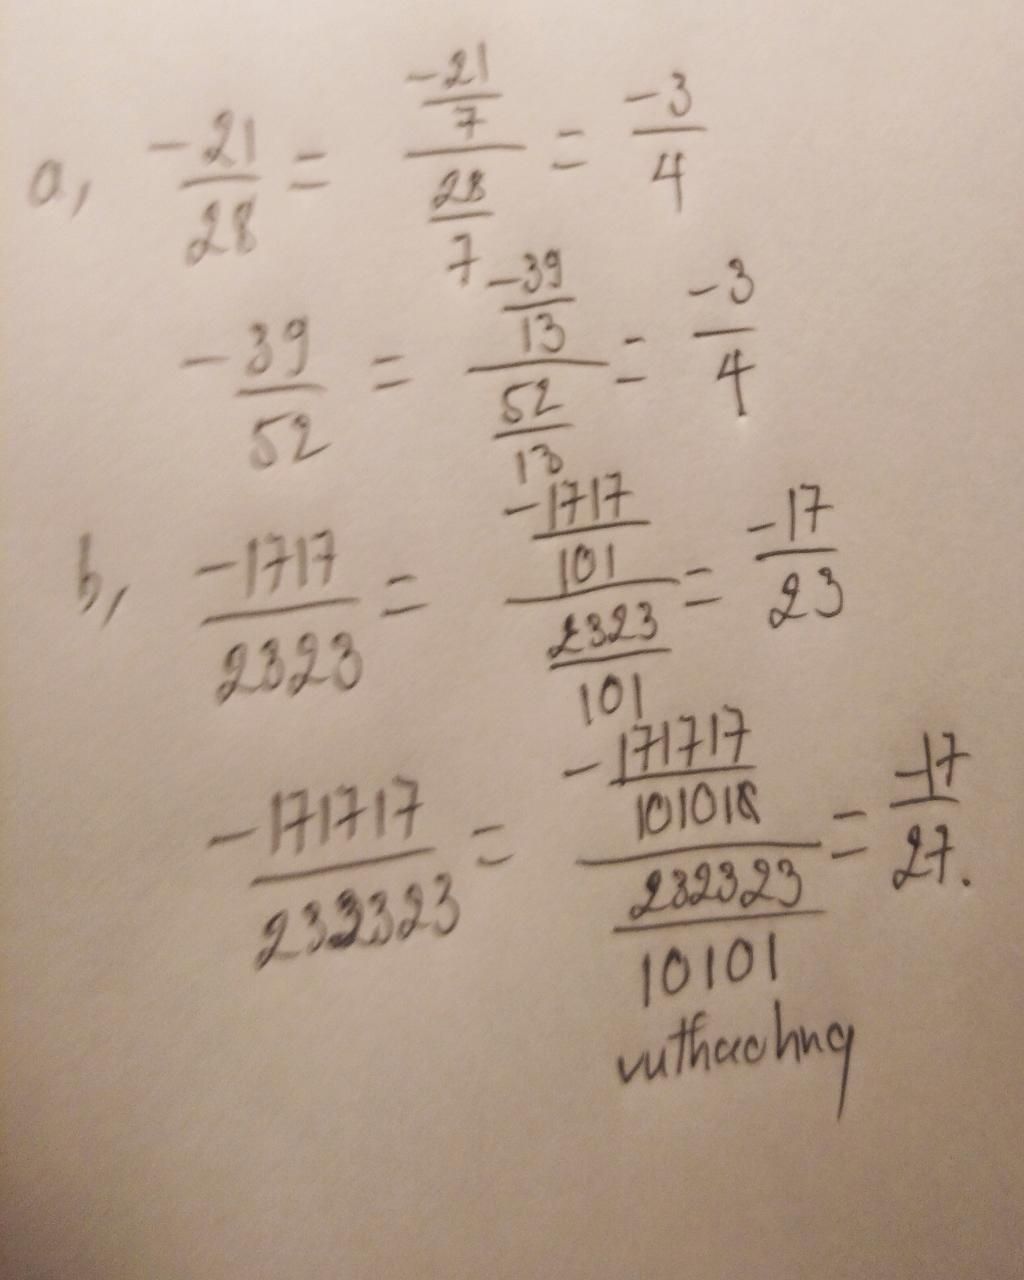 a, -21/28 = (-21/7)/(28/7) = -3/4
-39/52 = (-39/13)/(52/13) = -3/4
b, -1717/2323 = (-1717/101)/(2323/101) = -17/23
-171717/232323 = (-171717/10101)/(232323/10101) = -17/27.